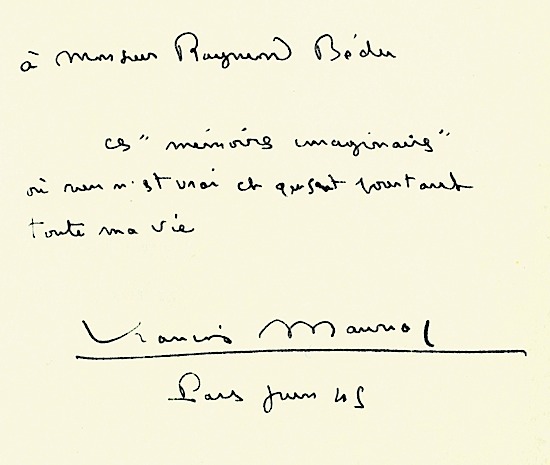 à Monsieur Raymond Bédu
ces "mémoires imaginaires"
où rien n'est vrai et qui sont pourtant
toute ma vie
Francis Mauriac
Paris Juin 45